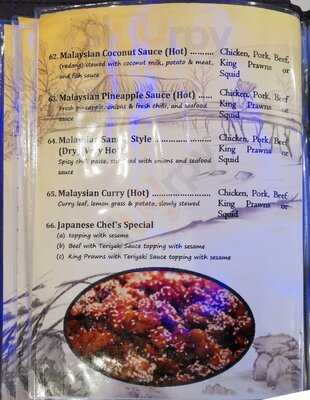 62. Malaysian Coconut Sauce (Hot) .......... Chicken, Pork, Beef,
(redang) stewed with coconut milk, potato & meat, King Prawns or
and fish sauce Squid
63. Malaysian Pineapple Sauce (Hot) ......... Chicken, Pork, Beef,
Fresh pineapple, onions & fresh chilli, and seafood King Prawns or
sauce Squid
64. Malaysian Style .................. Chicken, Pork, Beef,
(Dry, Very Hot) King Prawns or
Spicy chilli paste, with onions and seafood Squid
sauce
65. Malaysian Curry (Hot) ........................ Chicken, Pork, Beef
Curry leaf, lemon grass & potato, slowly stewed King Prawns or
Squid
66. Japanese Chef's Special
(a) topping with sesame
(b) Beef with Teriyaki Sauce topping with sesame
(c) King Prawns with Teriyaki Sauce topping with sesame